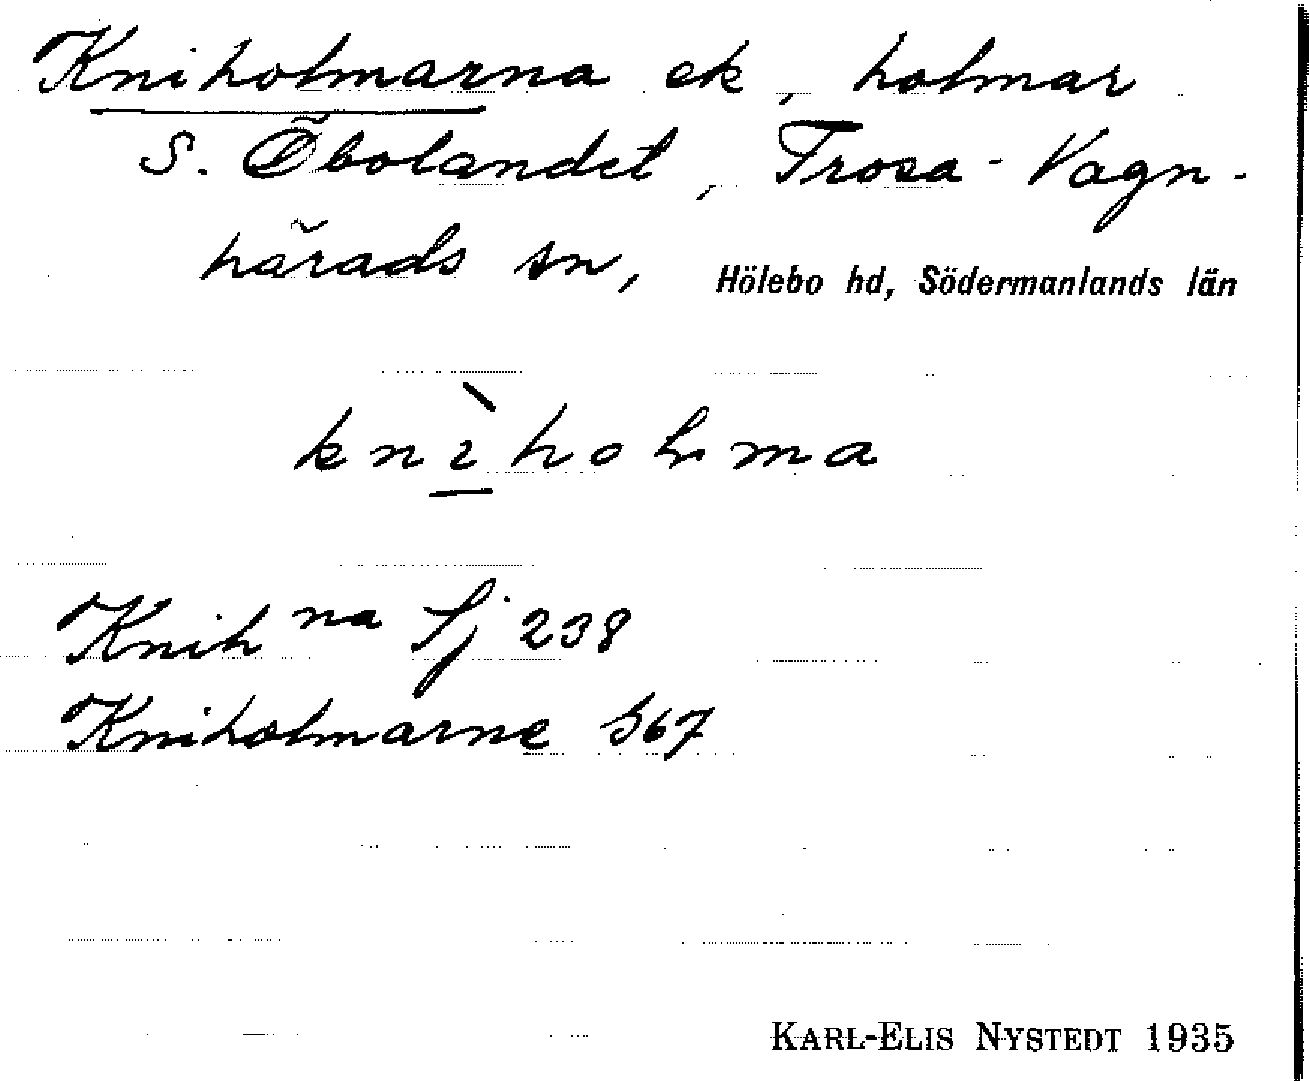 Kniholmarna ek, holmar
S. Öbolandet, Trosa-Vagn-
härads sn, Hölebo hd, Södermanlands län
knìholma
Knih na Sj 238
Kniholmarne S67
KARL-ELIS NYSTEDT 1935